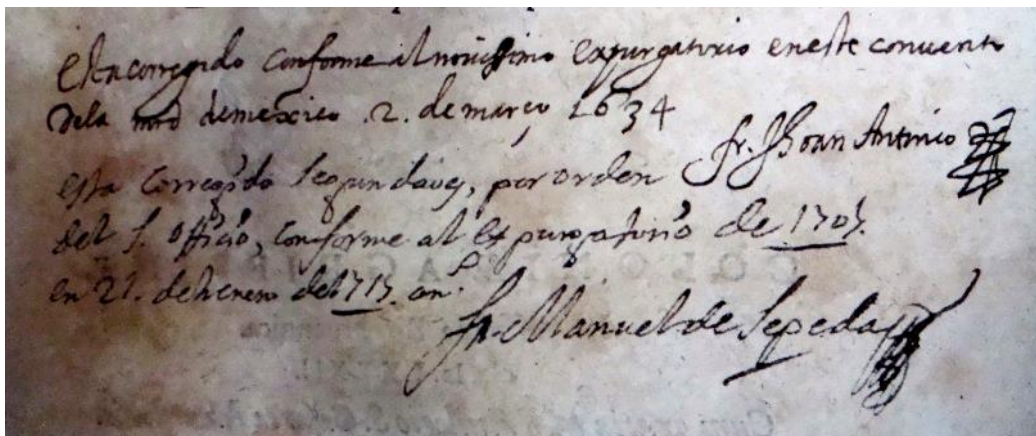 esta corregido conforme al novissimo expurgatorio en este convento
de la mrd de mexico .2. de março 1634
fr. Jhoan Antonio
esta corregido segunda ves, por orden
del S. Officio, conforme al expurgatorio de 1707.
en 21. de henero del 715. an.
Fr. Manuel de Sepeda